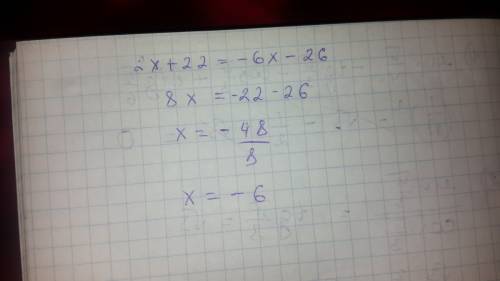 2x+22 = -6x - 26
8x = -22 - 26
x = - 48/8
x = - 6